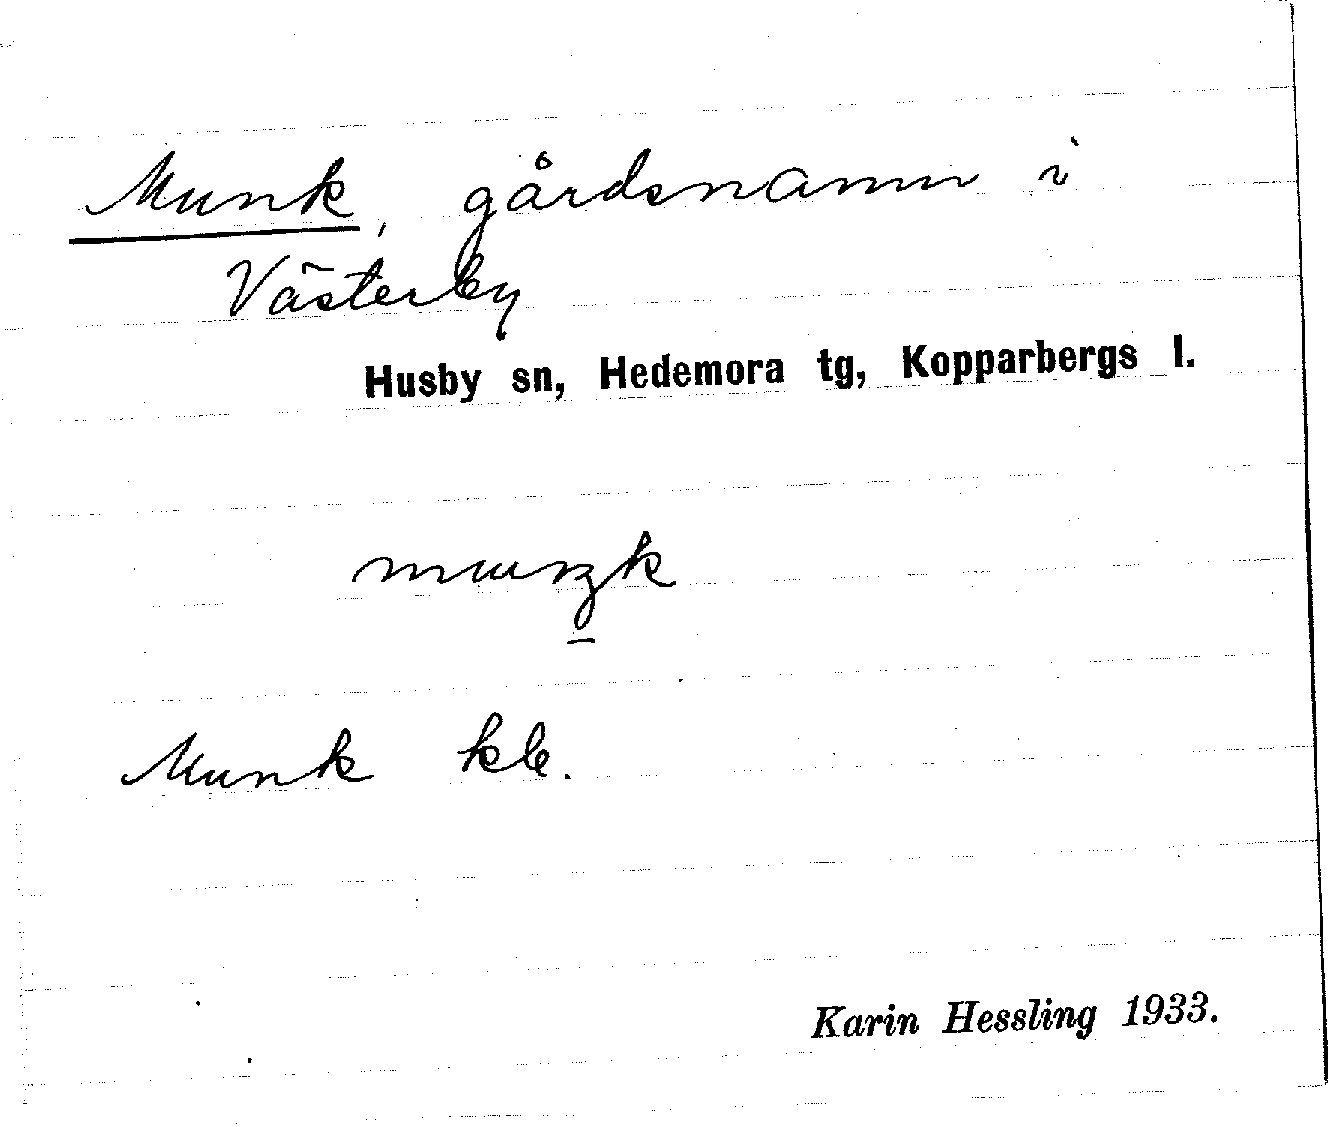 Munk, gårdsnamn i
Västerby
Husby sn, Hedemora tg, Kopparbergs l.
Munk kb.
Karin Hessling 1933.